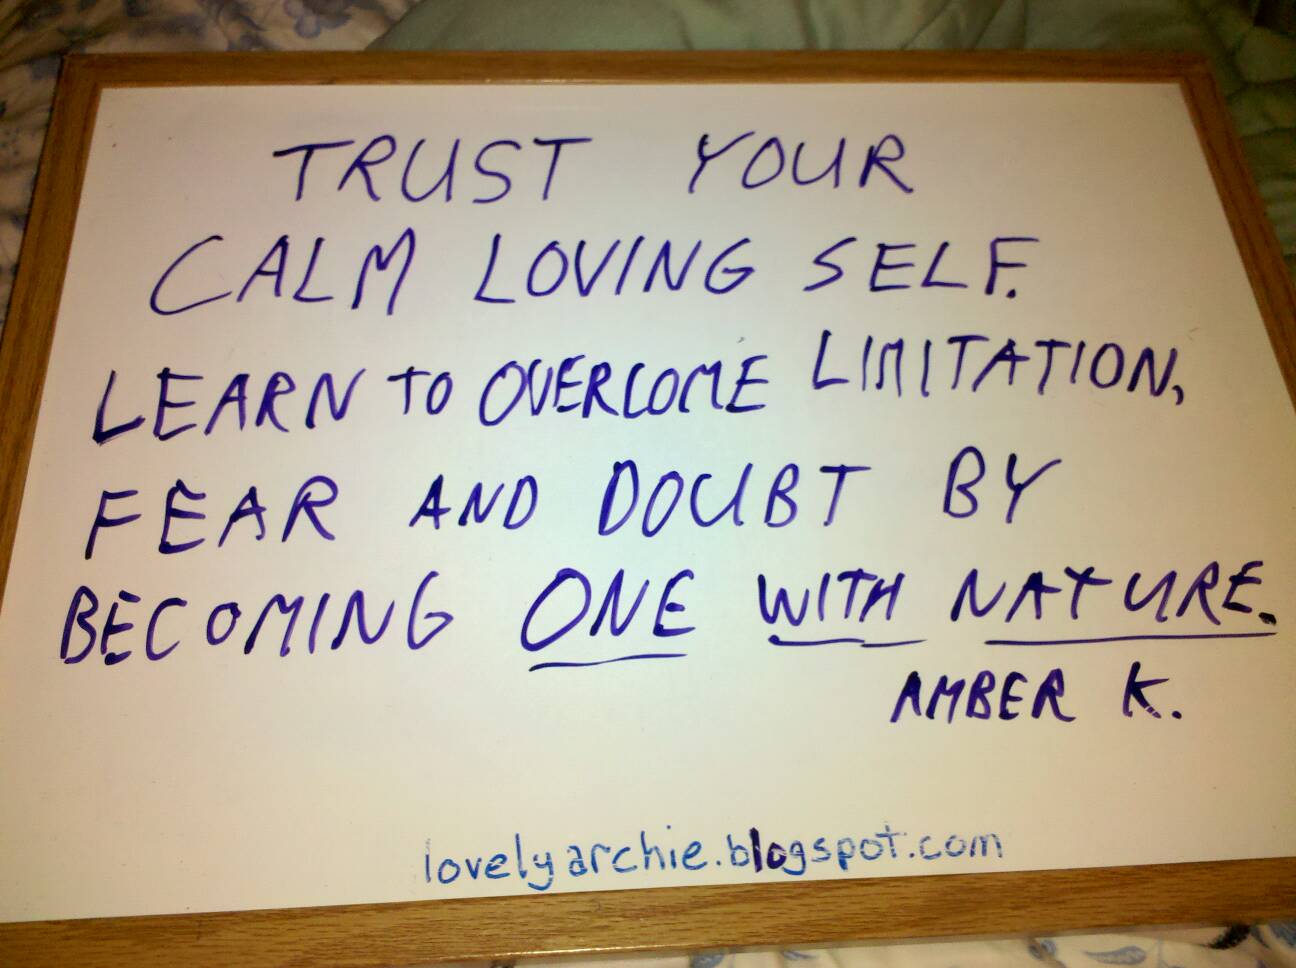 TRUST YOUR
CALM LOVING SELF.
LEARN TO OVERCOME LIMITATION,
FEAR AND DOUBT BY
BECOMING ONE WITH NATURE.
AMBER K.
lovelyarchie.blogspot.com